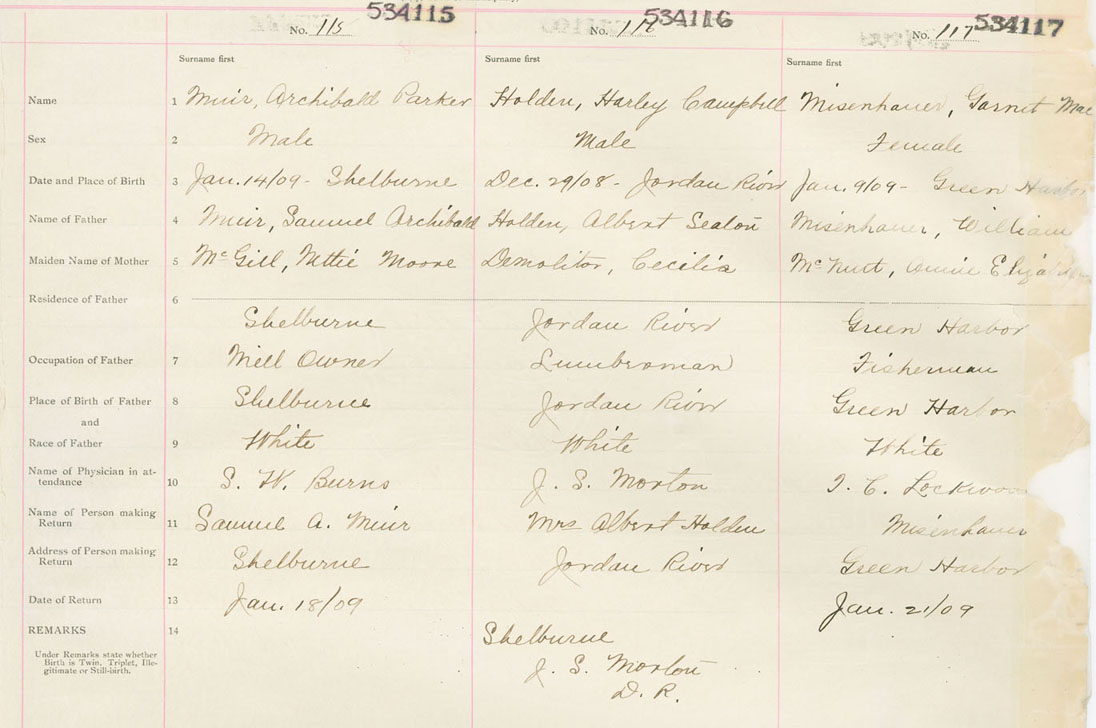 534115 534116 534117
No. 115 No. 116 No. 117
Surname first Surname first Surname first
Name 1 Muir, Archibald Parker Holden, Harley Campbell Misenhauer, Garnet Mae
Sex 2 Male Male Female
Date and Place of Birth 3 Jan. 14/09 - Shelburne Dec. 29/08 - Jordan River Jan. 9/09 - Green Harbor
Name of Father 4 Muir, Samuel Archibald Holden, Albert Misenhauer, William
Maiden Name of Mother 5 McGill, Moore Demolitor, Cecilia McNutt, Annie
Residence of Father 6
Shelburne Jordan River Green Harbor
Occupation of Father 7 Mill Owner Lumberman Fisherman
Place of Birth of Father 8 Shelburne Jordan River Green Harbor
and
Race of Father 9 White White White
Name of Physician in at-
tendance 10 S. W. Burns J. S. Morton Lockwood
Name of Person making
Return 11 Samuel A. Muir Mrs Albert Holden Misenhauer
Address of Person making
Return 12 Shelburne Jordan River Green Harbor
Date of Return 13 Jan. 18/09 Jan. 21/09
REMARKS 14 Shelburne
Under Remarks state whether
Birth is Twin, Triplet, Ille-
gitimate or Still-birth.
J. S. Morton
D. R.